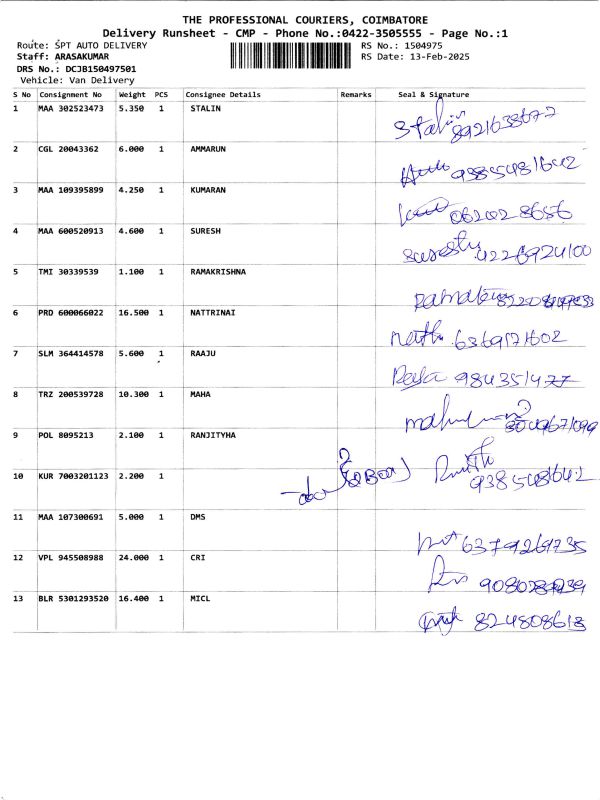 THE PROFESSIONAL COURIERS, COIMBATORE
Delivery Runsheet - CMP - Phone No.:0422-3505555 - Page No.:1
Route: SPT AUTO DELIVERY RS No.: 1504975
Staff: ARASAKUMAR RS Date: 13-Feb-2025
DRS No.: DCJB150497501
Vehicle: Van Delivery
S No Consignment No Weight PCS Consignee Details Remarks Seal & Signature
1 MAA 302523473 5.350 1 STALIN
Stalin
2 CGL 20043362 6.000 1 AMMARUN
9385481642
3 MAA 109395899 4.250 1 KUMARAN
4 MAA 600520913 4.600 1 SURESH
Suresh
5 TMI 30339539 1.100 1 RAMAKRISHNA
6 PRD 600066022 16.500 1 NATTRINAI
6369171602
7 SLM 364414578 5.600 1 RAAJU
8 TRZ 200539728 10.300 1 MAHA
9 POL 8095213 2.100 1 RANJITYHA
10 KUR 7003201123 2.200 1
9385481642
11 MAA 107300691 5.000 1 DMS
6379269735
12 VPL 945508988 24.000 1 CRI
13 BLR 5301293520 16.400 1 MICL